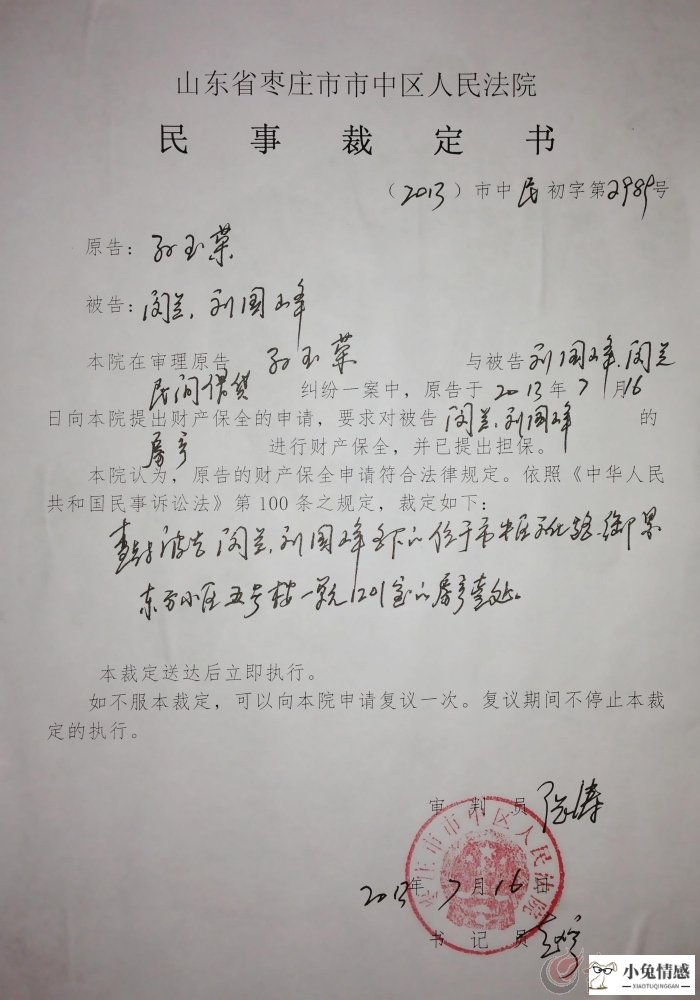 山东省枣庄市市中区人民法院
民事裁定书
（2013）市中民初字第2989号
原告：孙玉荣
被告：闵兰、刘国峰
本院在审理原告 孙玉荣 与被告刘国峰、闵兰
民间借贷 纠纷一案中，原告于2013年7月16
日向本院提出财产保全的申请，要求对被告 闵兰、刘国峰 的
房产 进行财产保全，并已提出担保。
本院认为，原告的财产保全申请符合法律规定。依照《中华人民
共和国民事诉讼法》第100条之规定，裁定如下：
被告闵兰、刘国峰名下的位于市中区文化路御景
东方小区五号楼一单元1201室的房产查封。
本裁定送达后立即执行。
如不服本裁定，可以向本院申请复议一次。复议期间不停止本裁
定的执行。
审判员
枣庄市市中区人民法院
2013年7月16日
书记员
小兔情感
XIAOTUQINGGAN